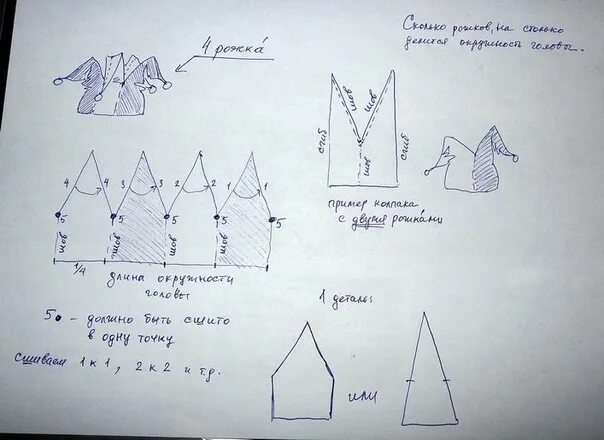 4 рожка
Сколько рожков, на столько
делится окружность головы.
шов
шов
сгиб
шов
сгиб
пример колпака
с двумя рожками
4 4 3 3 2 2 1 1
5 5 5 5 5
шов шов шов шов
1/4
длина окружности
головы
5 - должно быть сшито
в одну точку
Сшиваем 1 к 1, 2 к 2 и т.д.
1 деталь:
или